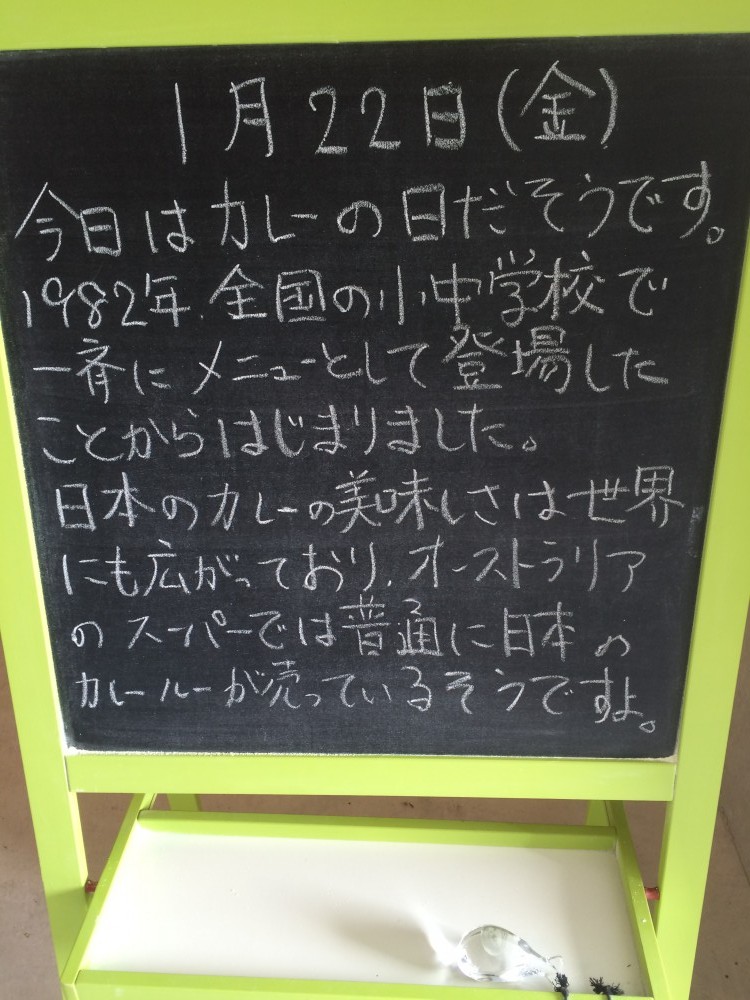 1月22日(金)
今日はカレーの日だそうです。
1982年、全国の小中学校で
一斉にメニューとして登場した
ことからはじまりました。
日本のカレーの美味しさは世界
にも広がっており、オーストラリア
のスーパーでは普通に日本の
カレールーが売っているそうですよ。